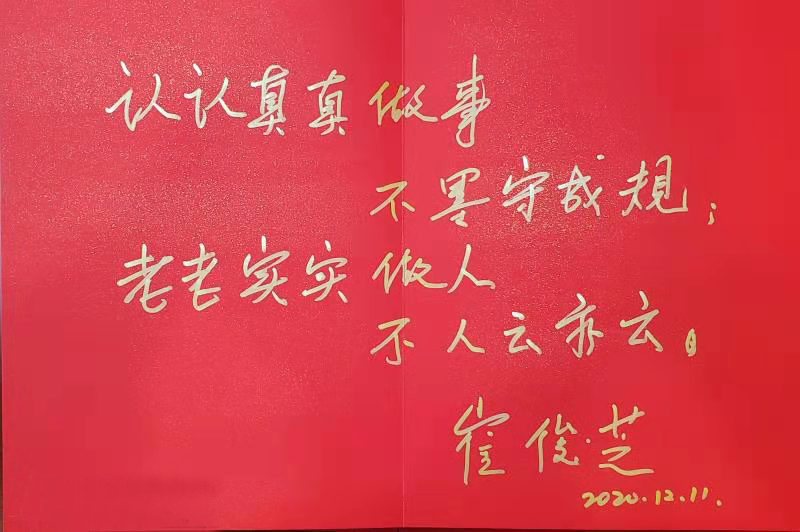 认认真真做事
不墨守成规；
老老实实做人
不人云亦云。
崔俊芝
2020.12.11.